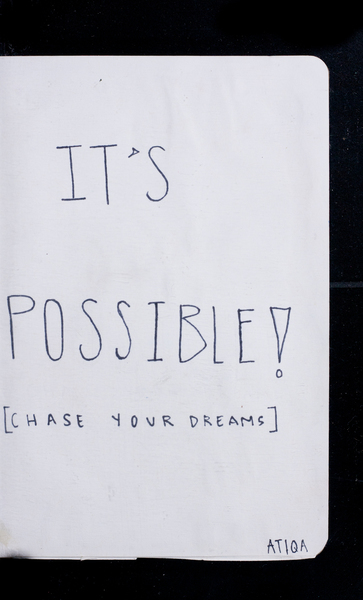 IT'S
POSSIBLE!
[CHASE YOUR DREAMS]
ATIQA